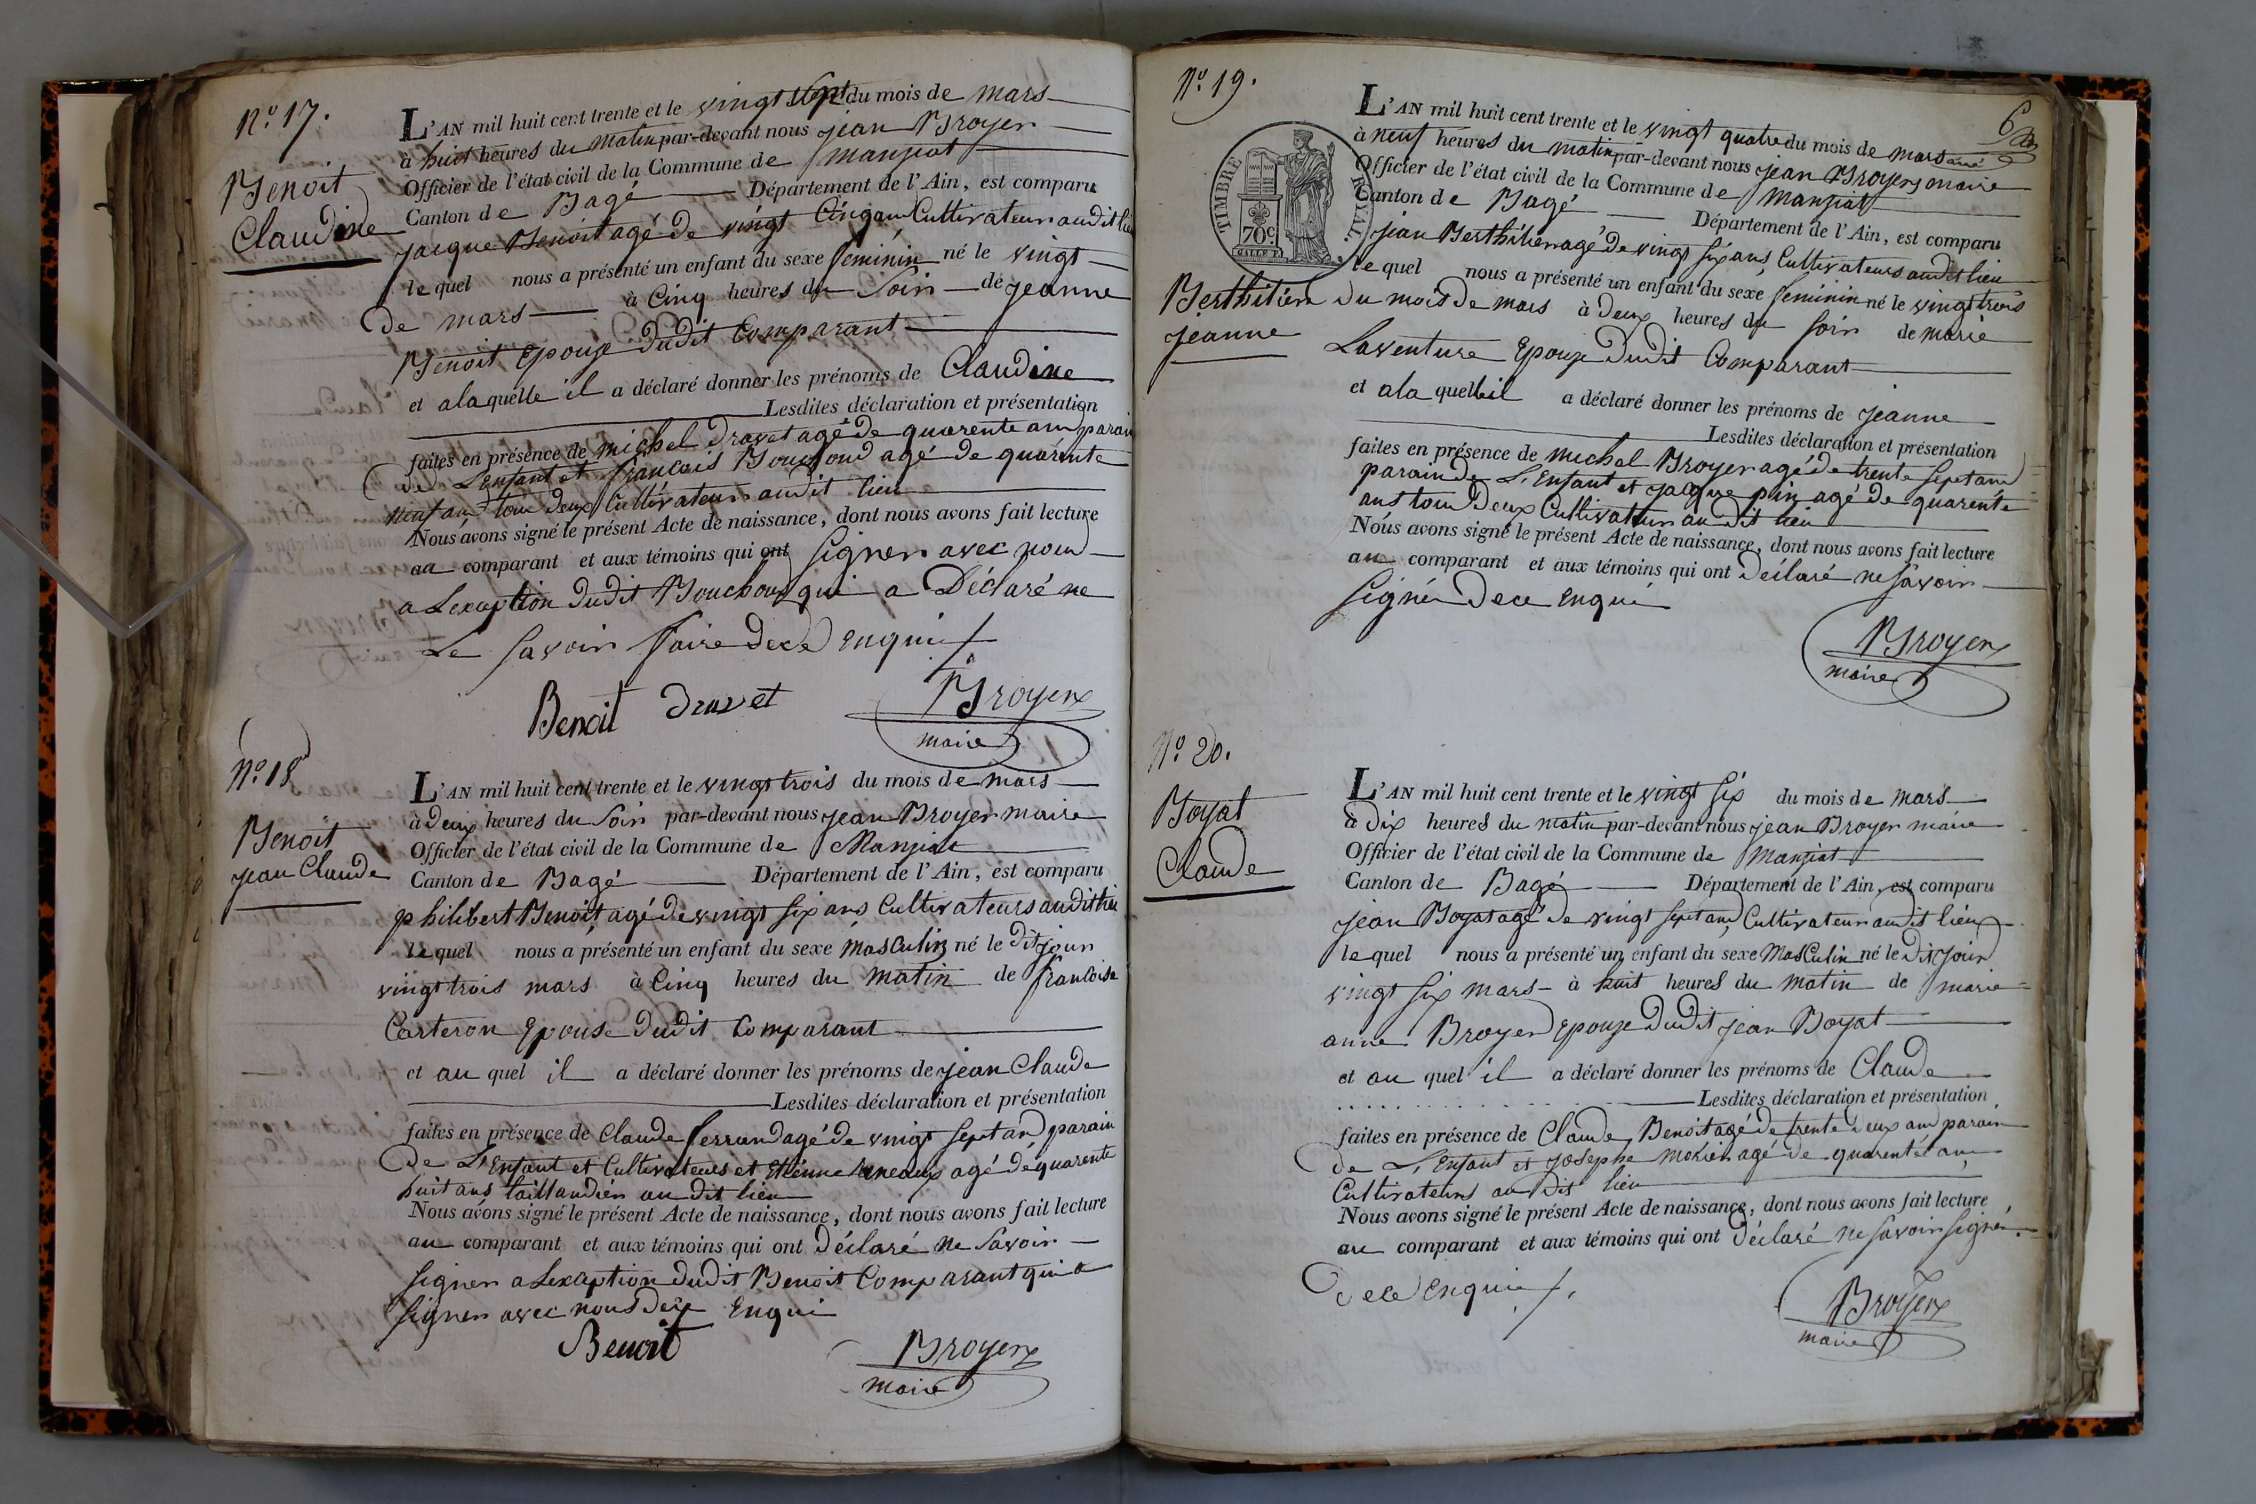 N.o 17.
Benoit
Claudine
L'AN mil huit cent trente et le vingt sept du mois de mars
à huit heures du matin par-devant nous jean Broyer
Officier de l'état civil de la Commune de Manziat
Canton de Bagé Département de l'Ain, est comparu
jacque Benoit agé de vingt Cinq ans Cultivateur audit lieu
le quel nous a présenté un enfant du sexe feminin né le vingt
de mars à Cinq heures du Soir de jeanne
Benoit Epouse dudit Comparant
et a laquelle il a déclaré donner les prénoms de Claudine
Lesdites déclaration et présentation
faites en présence de michel dravet agé de quarente ans parain
de L'Enfant et francois Bouchoud agé de quarente
neuf ans tous deux Cultivateurs audit lieu
Nous avons signé le présent Acte de naissance, dont nous avons fait lecture
au comparant et aux témoins qui ont Signer avec nous
a Lexception dudit Bouchoud qui a Déclaré ne
Le Savoir faire de ce Enquis
Benoit dravet Broyer
maire
N.o 18
Benoit
jean Claude
L'AN mil huit cent trente et le vingt trois du mois de mars
à Deux heures du Soir par-devant nous jean Broyer maire
Officier de l'état civil de la Commune de Manziat
Canton de Bagé Département de l'Ain, est comparu
philibert Benoit agé de vingt six ans Cultivateurs audit lieu
le quel nous a présenté un enfant du sexe masculin né le dit jour
vingt trois mars à Cinq heures du matin de francoise
Carteron Epouse dudit Comparant
et au quel il a déclaré donner les prénoms de jean Claude
Lesdites déclaration et présentation
faites en présence de Claude ferrand agé de vingt sept ans parain
de L'Enfant et Cultivateurs et Etienne agé de quarente
huit ans taillandier au dit lieu
Nous avons signé le présent Acte de naissance, dont nous avons fait lecture
au comparant et aux témoins qui ont Déclaré ne Savoir
Signer a Lexception dudit Benoit Comparant qui a
Signer avec nous de ce Enqui
Benoit Broyer
maire
N.o 19.
6
TIMBRE ROYAL.
70c
Berthilier
jeanne
L'AN mil huit cent trente et le vingt quatre du mois de mars
à neuf heures du matin par-devant nous jean Broyer maire
Officier de l'état civil de la Commune de Manziat
Canton de Bagé Département de l'Ain, est comparu
jean Berthilier agé de vingt six ans Cultivateurs audit lieu
le quel nous a présenté un enfant du sexe feminin né le vingt trois
du mois de mars à deux heures du Soir de marie
Laventure Epouse dudit Comparant
et a la quelle il a déclaré donner les prénoms de jeanne
Lesdites déclaration et présentation
faites en présence de michel Broyer agé de trente sept ans
parain de L'Enfant et jacque pin agé de quarente
ans tous Deux Cultivateurs au dit lieu
Nous avons signé le présent Acte de naissance, dont nous avons fait lecture
au comparant et aux témoins qui ont déclaré ne Savoir
Signer de ce Enqui
Broyer
maire
N.o 20.
Boyat
Claude
L'AN mil huit cent trente et le vingt Six du mois de mars
à Dix heures du matin par-devant nous jean Broyer maire
Officier de l'état civil de la Commune de Manziat
Canton de Bagé Département de l'Ain, est comparu
jean Boyat agé de vingt sept ans Cultivateur audit lieu
le quel nous a présenté un enfant du sexe Masculin né le Dit jour
vingt Six mars à huit heures du matin de marie
anne Broyer Epouse dudit jean Boyat
et au quel il a déclaré donner les prénoms de Claude
Lesdites déclaration et présentation
faites en présence de Claude Benoit agé de trente deux ans parain
de L'Enfant et josephe agé de quarente ans
Cultivateurs au dit lieu
Nous avons signé le présent Acte de naissance, dont nous avons fait lecture
au comparant et aux témoins qui ont déclaré ne Savoir Signer
de ce Enquis
Broyer
maire